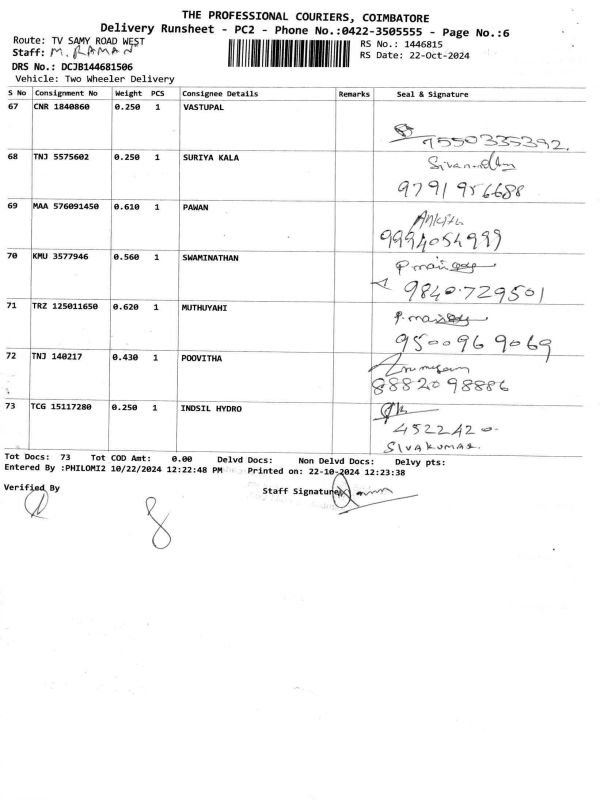 THE PROFESSIONAL COURIERS, COIMBATORE
Delivery Runsheet - PC2 - Phone No.:0422-3505555 - Page No.:6
Route: TV SAMY ROAD WEST RS No.: 1446815
Staff: M. RAMAN RS Date: 22-Oct-2024
DRS No.: DCJB144681506
Vehicle: Two Wheeler Delivery
S No Consignment No Weight PCS Consignee Details Remarks Seal & Signature
67 CNR 1840860 0.250 1 VASTUPAL
7550335392.
68 TNJ 5575602 0.250 1 SURIYA KALA
9791956688
69 MAA 576091450 0.610 1 PAWAN
Ankita
9994054999
70 KMU 3577946 0.560 1 SWAMINATHAN
9840729501
71 TRZ 125011650 0.620 1 MUTHUYAHI
9500969069
72 TNJ 140217 0.430 1 POOVITHA
8882098886
73 TCG 15117280 0.250 1 INDSIL HYDRO
4522420.
SIVAKUMAR.
Tot Docs: 73 Tot COD Amt: 0.00 Delvd Docs: Non Delvd Docs: Delvy pts:
Entered By :PHILOMI2 10/22/2024 12:22:48 PM Printed on: 22-10-2024 12:23:38
Verified By Staff Signature